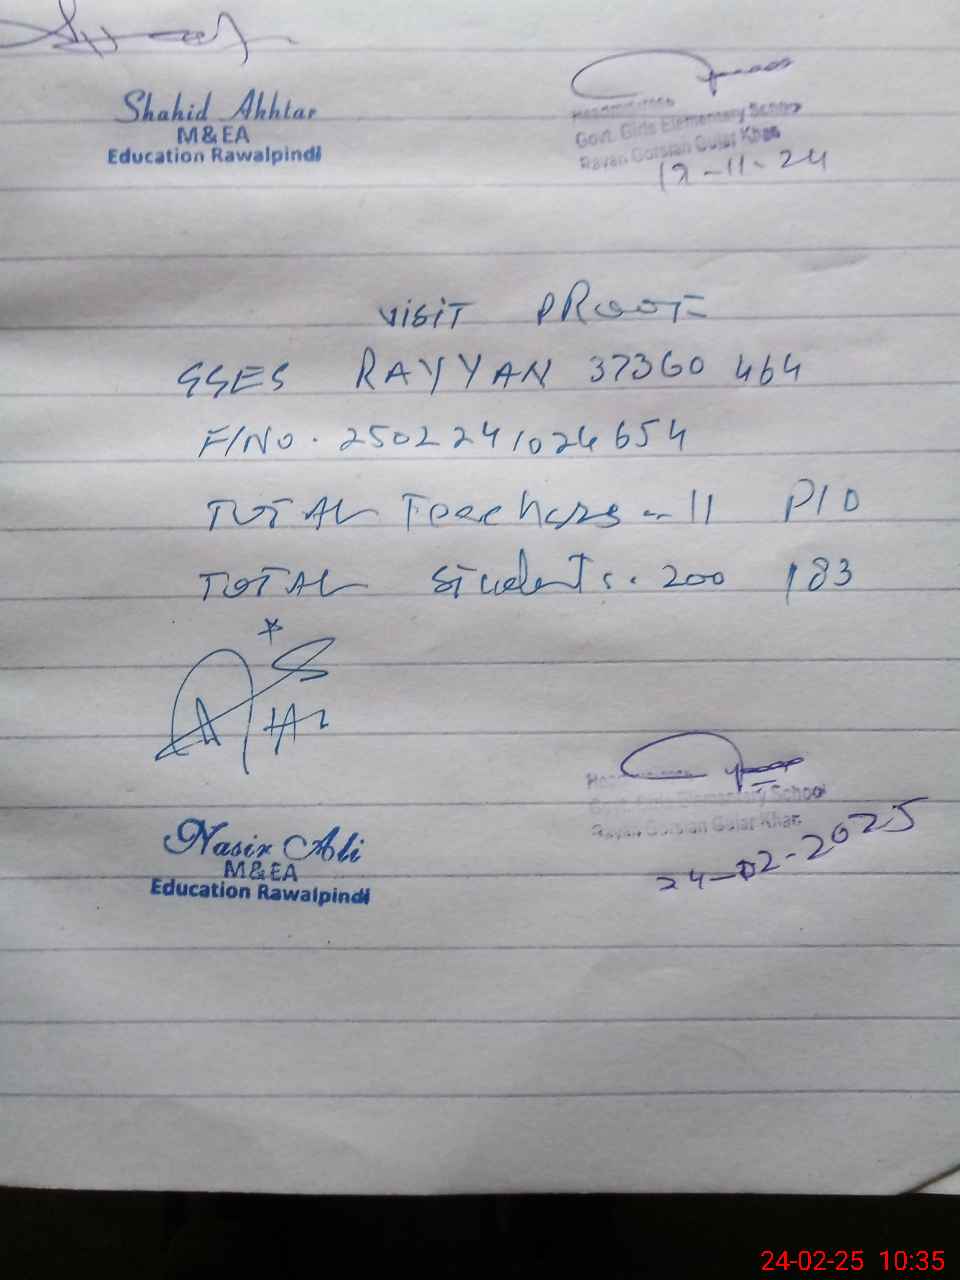 Shahid Akhtar
M&EA
Education Rawalpindi
Headmistress
Govt. Girls Elementary School
Rayan Gorsian Gujar Khan
12-11-24
VISIT PROOF
GGES RAYYAN 37360 464
F/NO. 2502241024654
TOTAL Teachers - 11 P10
TOTAL Students. 200 183
Nasir Ali
M&EA
Education Rawalpindi
Headmistress
Govt. Girls Elementary School
Rayan Gorsian Gujar Khan
24-02-2025
24-02-25 10:35